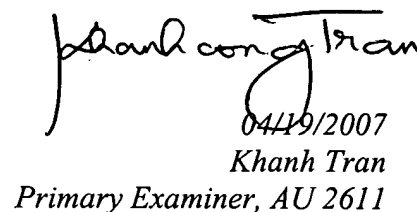 Khanh cong Tran
04/19/2007
Khanh Tran
Primary Examiner, AU 2611